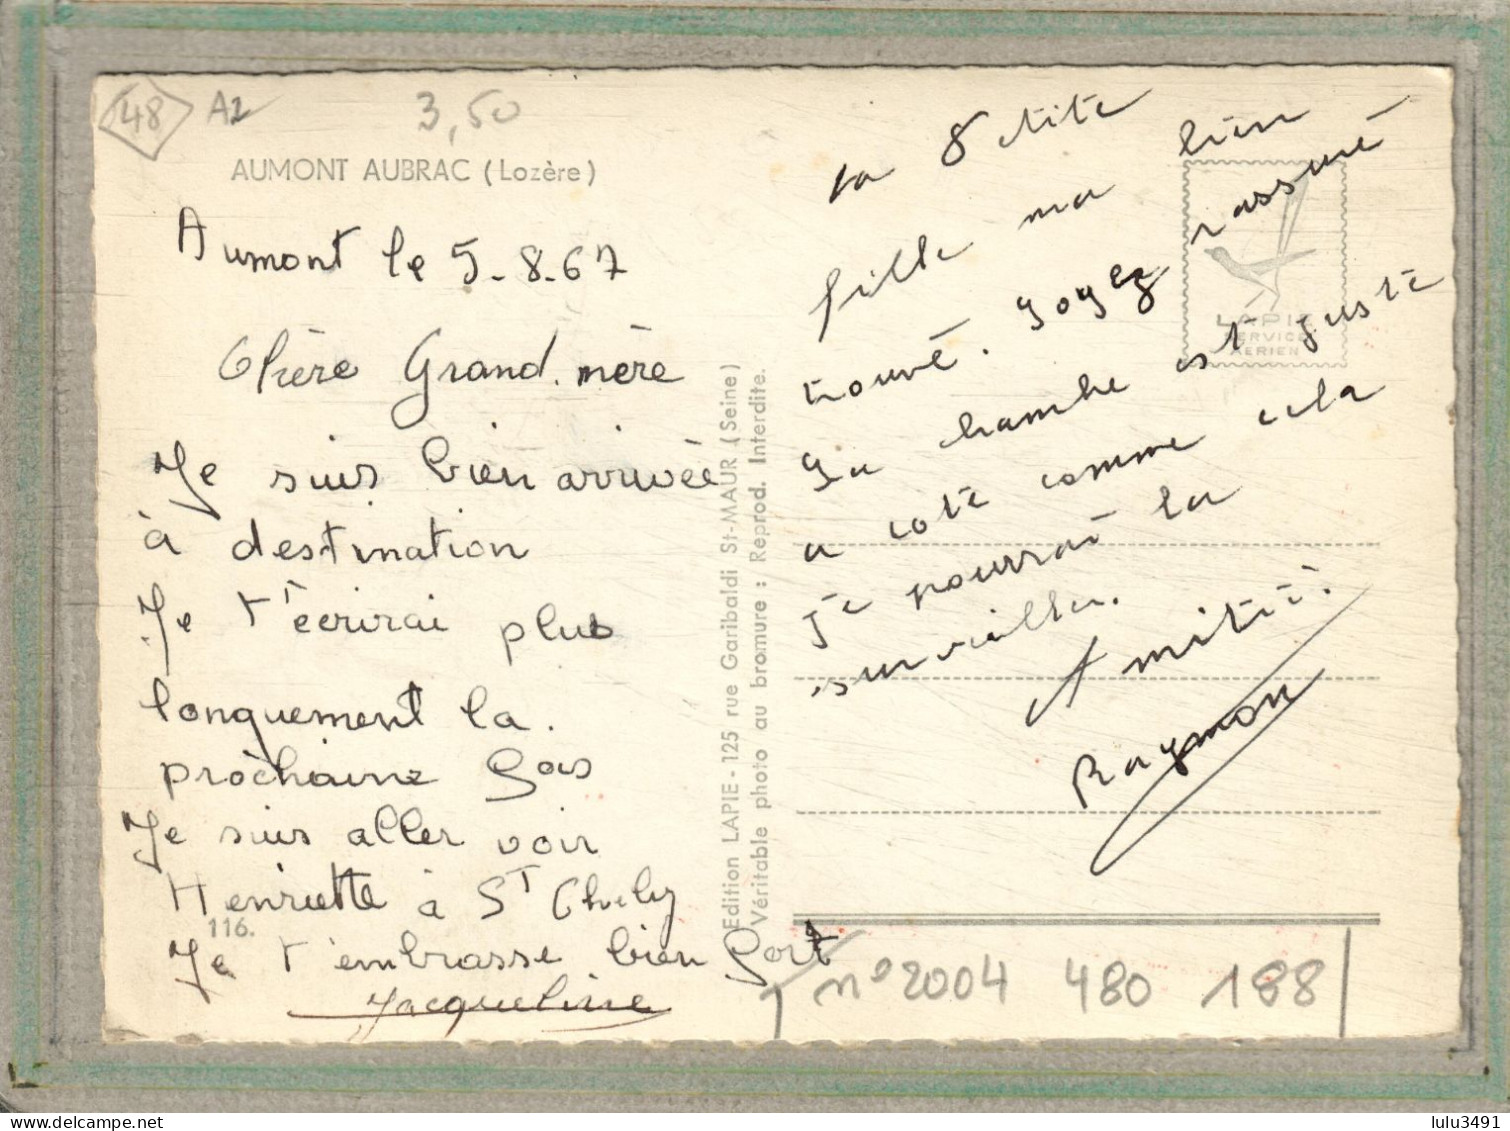 48 A2 3,50
AUMONT AUBRAC (Lozère)
Aumont le 5-8-67
Chère Grand.mère
Je suis bien arrivée
à destination
Je t'écrirai plus
longuement la
prochaine fois
Je suis aller voir
Henriette à St Chely
Je t'embrasse bien fort
Jacqueline
116.
Edition LAPIE - 125 rue Garibaldi St-MAUR (Seine)
Véritable photo au bromure : Reprod. Interdite.
LAPIE
SERVICE
AERIEN
la Petite
fille ma bien
trouvé. Soyez rassuré
Sa chambre est juste
a coté comme cela
je pourrai la
surveiller.
Amitié.
Raymon
n° 2004 480 188
lulu3491